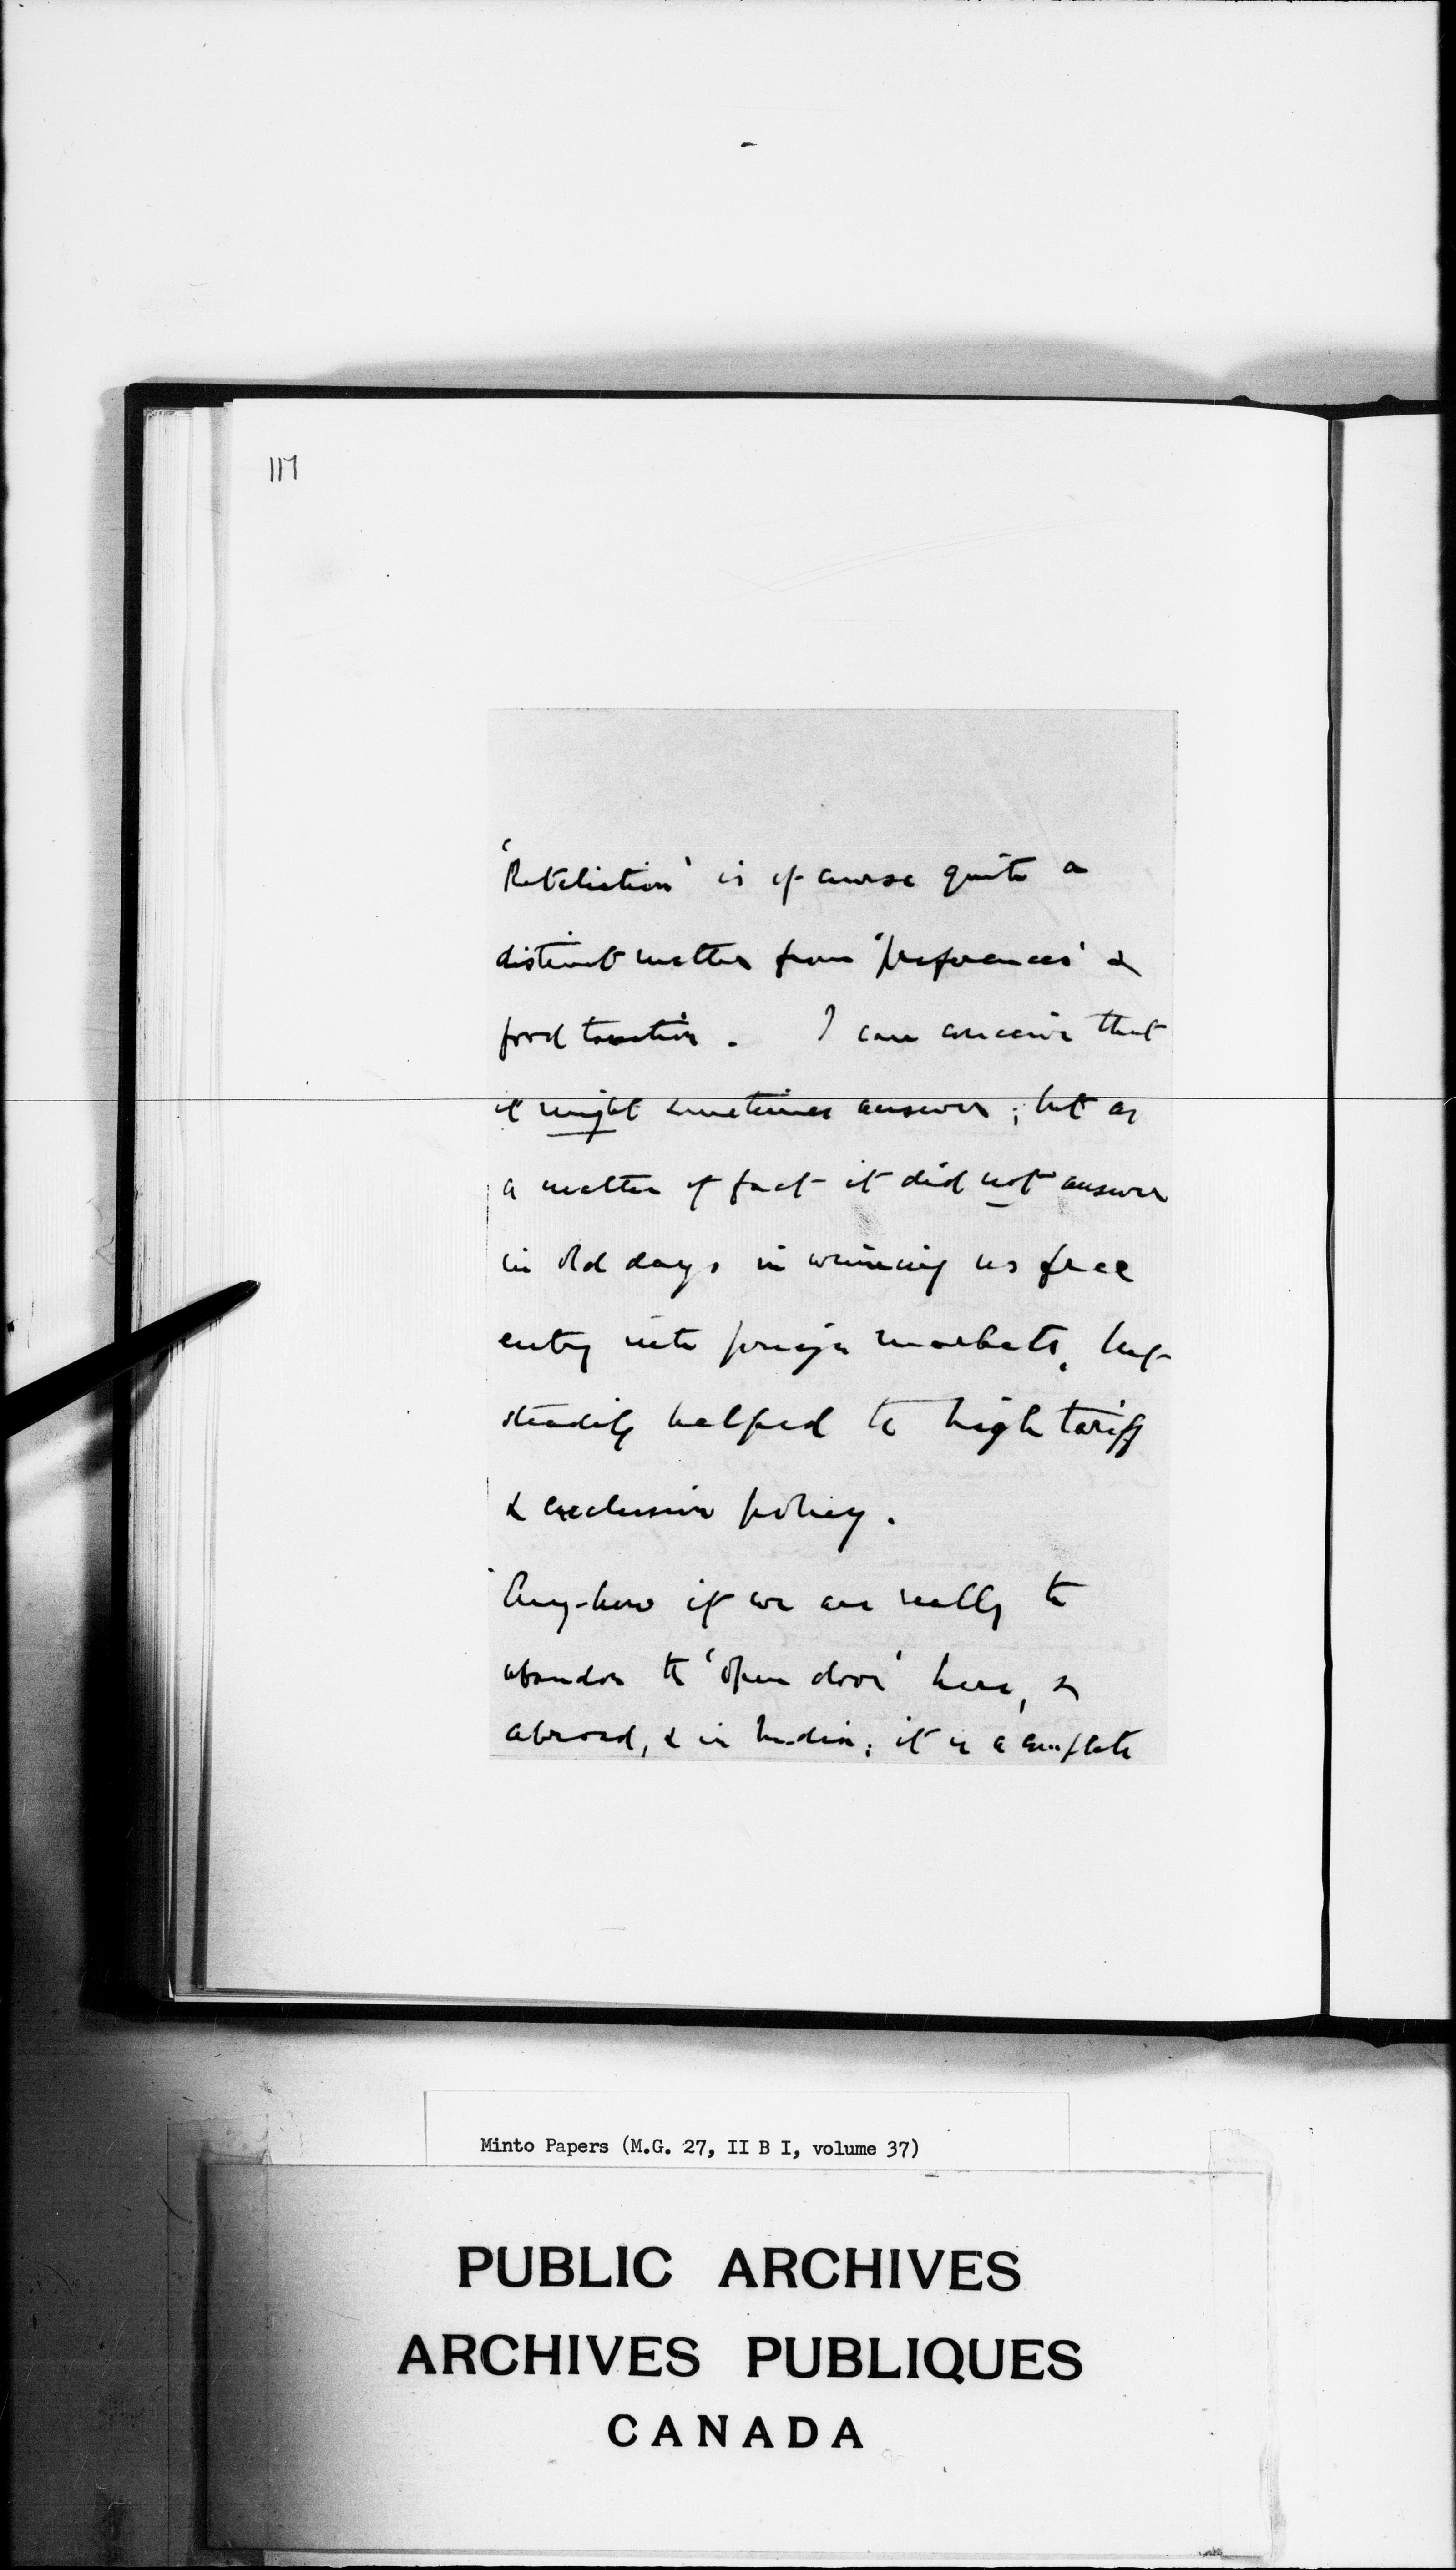 117
'Retaliation' is of course quite a
distinct matter from 'preferences' &
food taxation. I can conceive that
it might sometimes answer; but as
a matter of fact it did not answer
in old days in winning us free
entry into foreign markets, but
steadily helped to high tariff
& exclusive policy.
Any-how if we are really to
abandon the 'open door' here, &
abroad, & in India; it is a complete
Minto Papers (M.G. 27, II B I, volume 37)
PUBLIC ARCHIVES
ARCHIVES PUBLIQUES
CANADA